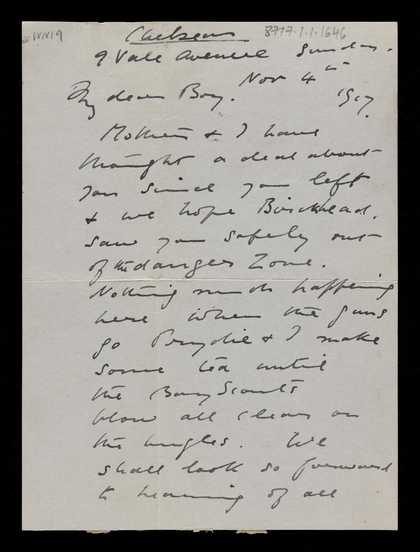 Chelsea
8717.1.1.1646
9 Vale Avenue Sunday.
Nov 4th
My dear Boy. 1917.
Mother & I have
thought a deal about
you since you left
& we hope Birkhead.
saw you safely out
of the danger Zone.
Nothing much happening
here when the guns
go Brydie & I make
some tea until
the Boy Scouts
blow all clear on
the bugles. We
shall look so forward
to hearing of all